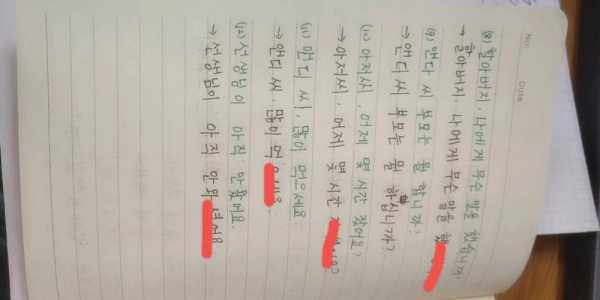 No.
Date
(8) 할아버지, 나에게 무슨 말을 했습니까?
→ 할아버지, 나에게 무슨 말을
(9) 앤디 씨 부모는 뭘 합니까?
→ 앤디 씨 부모는 뭘 하십니까?
(10) 아저씨, 어제 몇 시간 잤어요?
→ 아저씨, 어제 몇 시간
(11) 앤디 씨, 많이 먹으세요.
→ 앤디 씨, 많이
(12) 선생님이 아직 안 왔어요.
→ 선생님이 아직 안